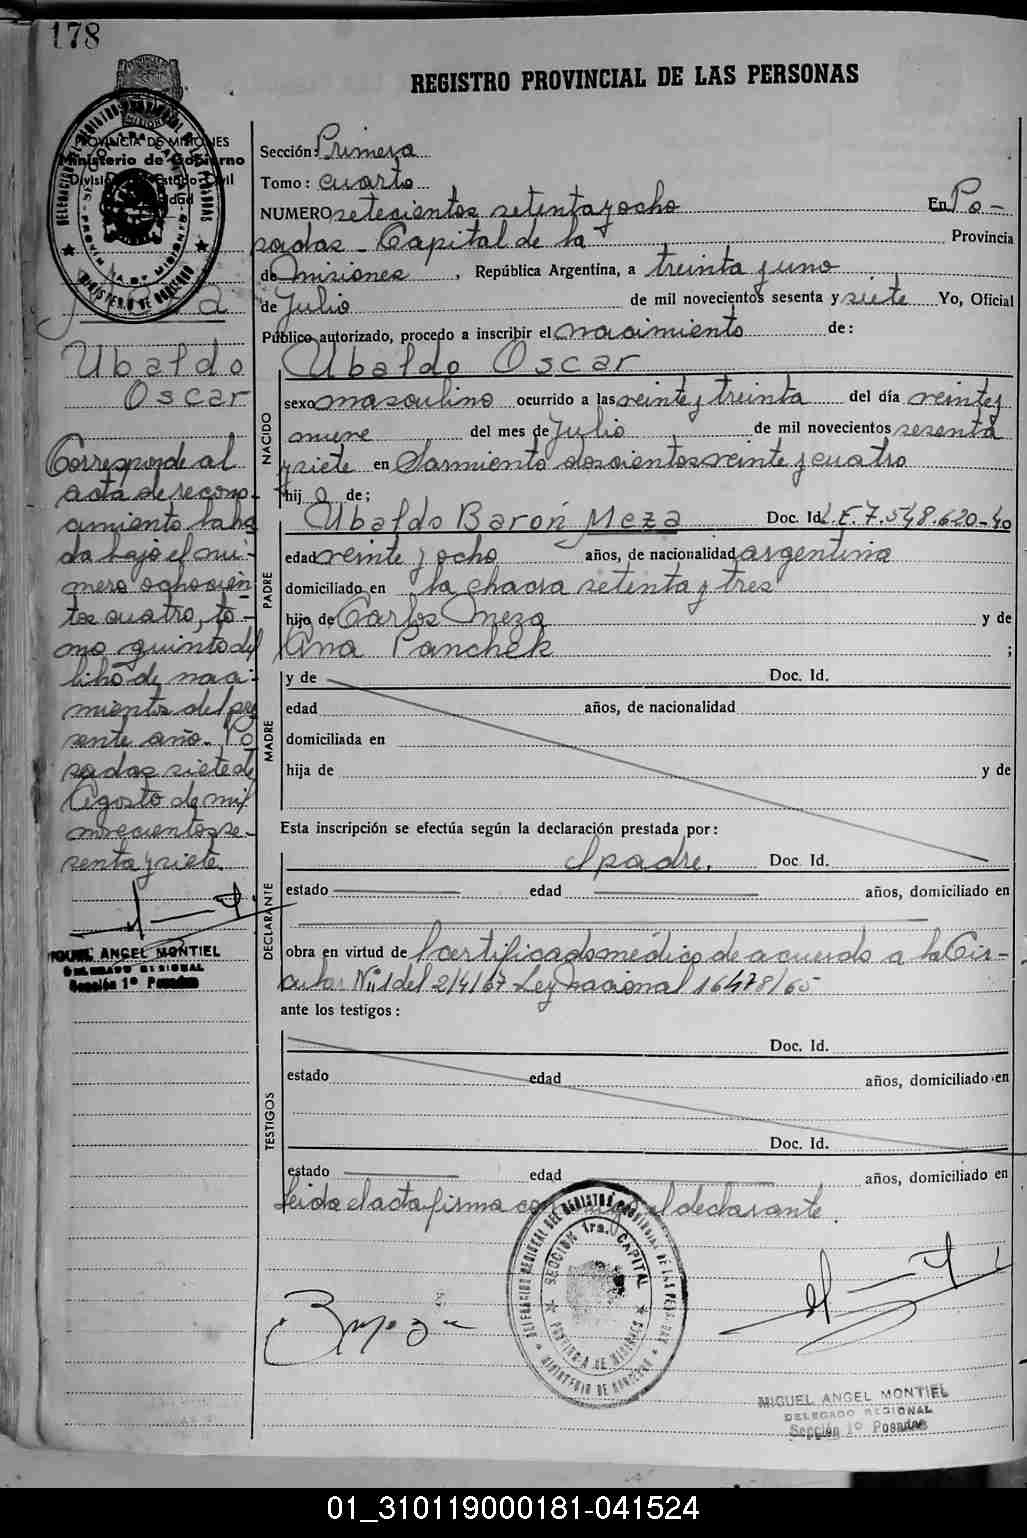 178
REGISTRO PROVINCIAL DE LAS PERSONAS
PROVINCIA DE MISIONES
Ministerio de Gobierno
Sección: Primera
Tomo: cuarto
NUMERO setecientos setenta y ocho En Po-
sadas - Capital de la Provincia
de Misiones, República Argentina, a treinta y uno
de Julio de mil novecientos sesenta y siete Yo, Oficial
Público autorizado, procedo a inscribir el nacimiento de:
Ubaldo Oscar
NACIDO
sexo masculino ocurrido a las veinte y treinta del día veinte y
nueve del mes de Julio de mil novecientos sesenta
y siete en Sarmiento doscientos veinte y cuatro
hijo de;
PADRE
Ubaldo Barón Meza Doc. Id. L.E. 7.548.620-40
edad veinte y ocho años, de nacionalidad argentina
domiciliado en la chacra setenta y tres
hijo de Carlos Meza y de
Ana Panchek ;
MADRE
y de Doc. Id.
edad años, de nacionalidad
domiciliada en
hija de y de
Esta inscripción se efectúa según la declaración prestada por:
DECLARANTE
el padre. Doc. Id.
estado edad años, domiciliado en
obra en virtud de l certificado médico de acuerdo a la Cir-
cular Nº 1 del 2/4/67 Ley nacional 16478/65
ante los testigos:
TESTIGOS
Doc. Id.
estado edad años, domiciliado en
Doc. Id.
estado edad años, domiciliado en
Leida el acta firma el declarante.
Ubaldo
Oscar
Corresponde al
acta de recono-
cimiento labra
da bajo el nú-
mero ochocien
tos cuatro, to-
mo quinto del
libro de naci-
mientos del pre
sente año. Po
sadas siete de
Agosto de mil
novecientos se-
senta y siete.
MIGUEL ANGEL MONTIEL
DELEGADO REGIONAL
Sección 1º Posadas
SECCION 1ra. CAPITAL
PROVINCIA DE MISIONES
MINISTERIO DE GOBIERNO
MIGUEL ANGEL MONTIEL
DELEGADO REGIONAL
Sección 1º Posadas
01_310119000181-041524